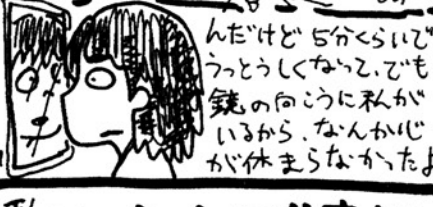 んだけど 5分くらいで
うっとうしくなって、でも
鏡の向こうに私が
いるから、なんか心
が休まらなかったよ